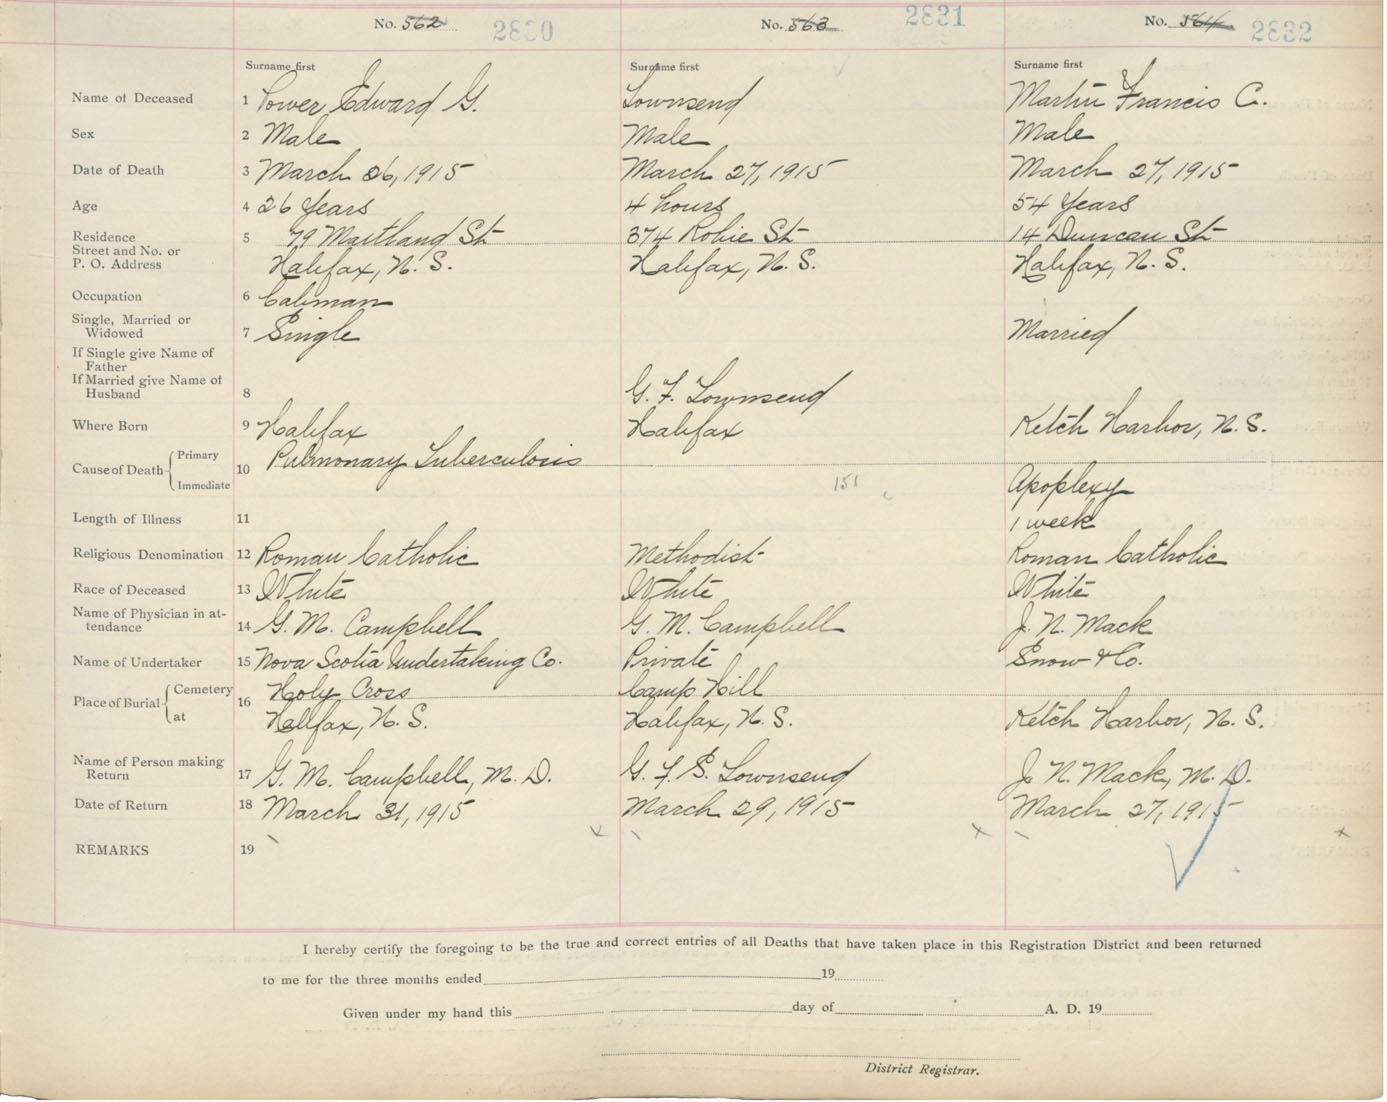 No. 562 2830
No. 563 2831
No. 564 2832
Surname first Surname first Surname first
Name of Deceased 1 Power Edward G. Townsend Martin Francis C.
Sex 2 Male Male Male
Date of Death 3 March 26, 1915 March 27, 1915 March 27, 1915
Age 4 26 Years 4 hours 54 Years
Residence 5 79 Maitland St 374 Robie St 14 Duncan St
Street and No. or
P. O. Address Halifax, N. S. Halifax, N. S. Halifax, N. S.
Occupation 6 Cabman
Single, Married or
Widowed 7 Single Married
If Single give Name of
Father
If Married give Name of
Husband 8 G. F. Townsend
Where Born 9 Halifax Halifax Ketch Harbor, N. S.
Cause of Death Primary 10 Pulmonary Tuberculosis
Immediate 151 Apoplexy
Length of Illness 11 1 week
Religious Denomination 12 Roman Catholic Methodist Roman Catholic
Race of Deceased 13 White White White
Name of Physician in at-
tendance 14 G. M. Campbell G. M. Campbell J. N. Mack
Name of Undertaker 15 Nova Scotia Undertaking Co. Private Snow & Co.
Place of Burial Cemetery 16 Holy Cross Camp Hill
at Halifax, N. S. Halifax, N. S. Ketch Harbor, N. S.
Name of Person making
Return 17 G. M. Campbell, M. D. G. F. S. Townsend J. N. Mack, M. D.
Date of Return 18 March 31, 1915 March 29, 1915 March 27, 1915
REMARKS 19
I hereby certify the foregoing to be the true and correct entries of all Deaths that have taken place in this Registration District and been returned
to me for the three months ended 19
Given under my hand this day of A. D. 19
District Registrar.